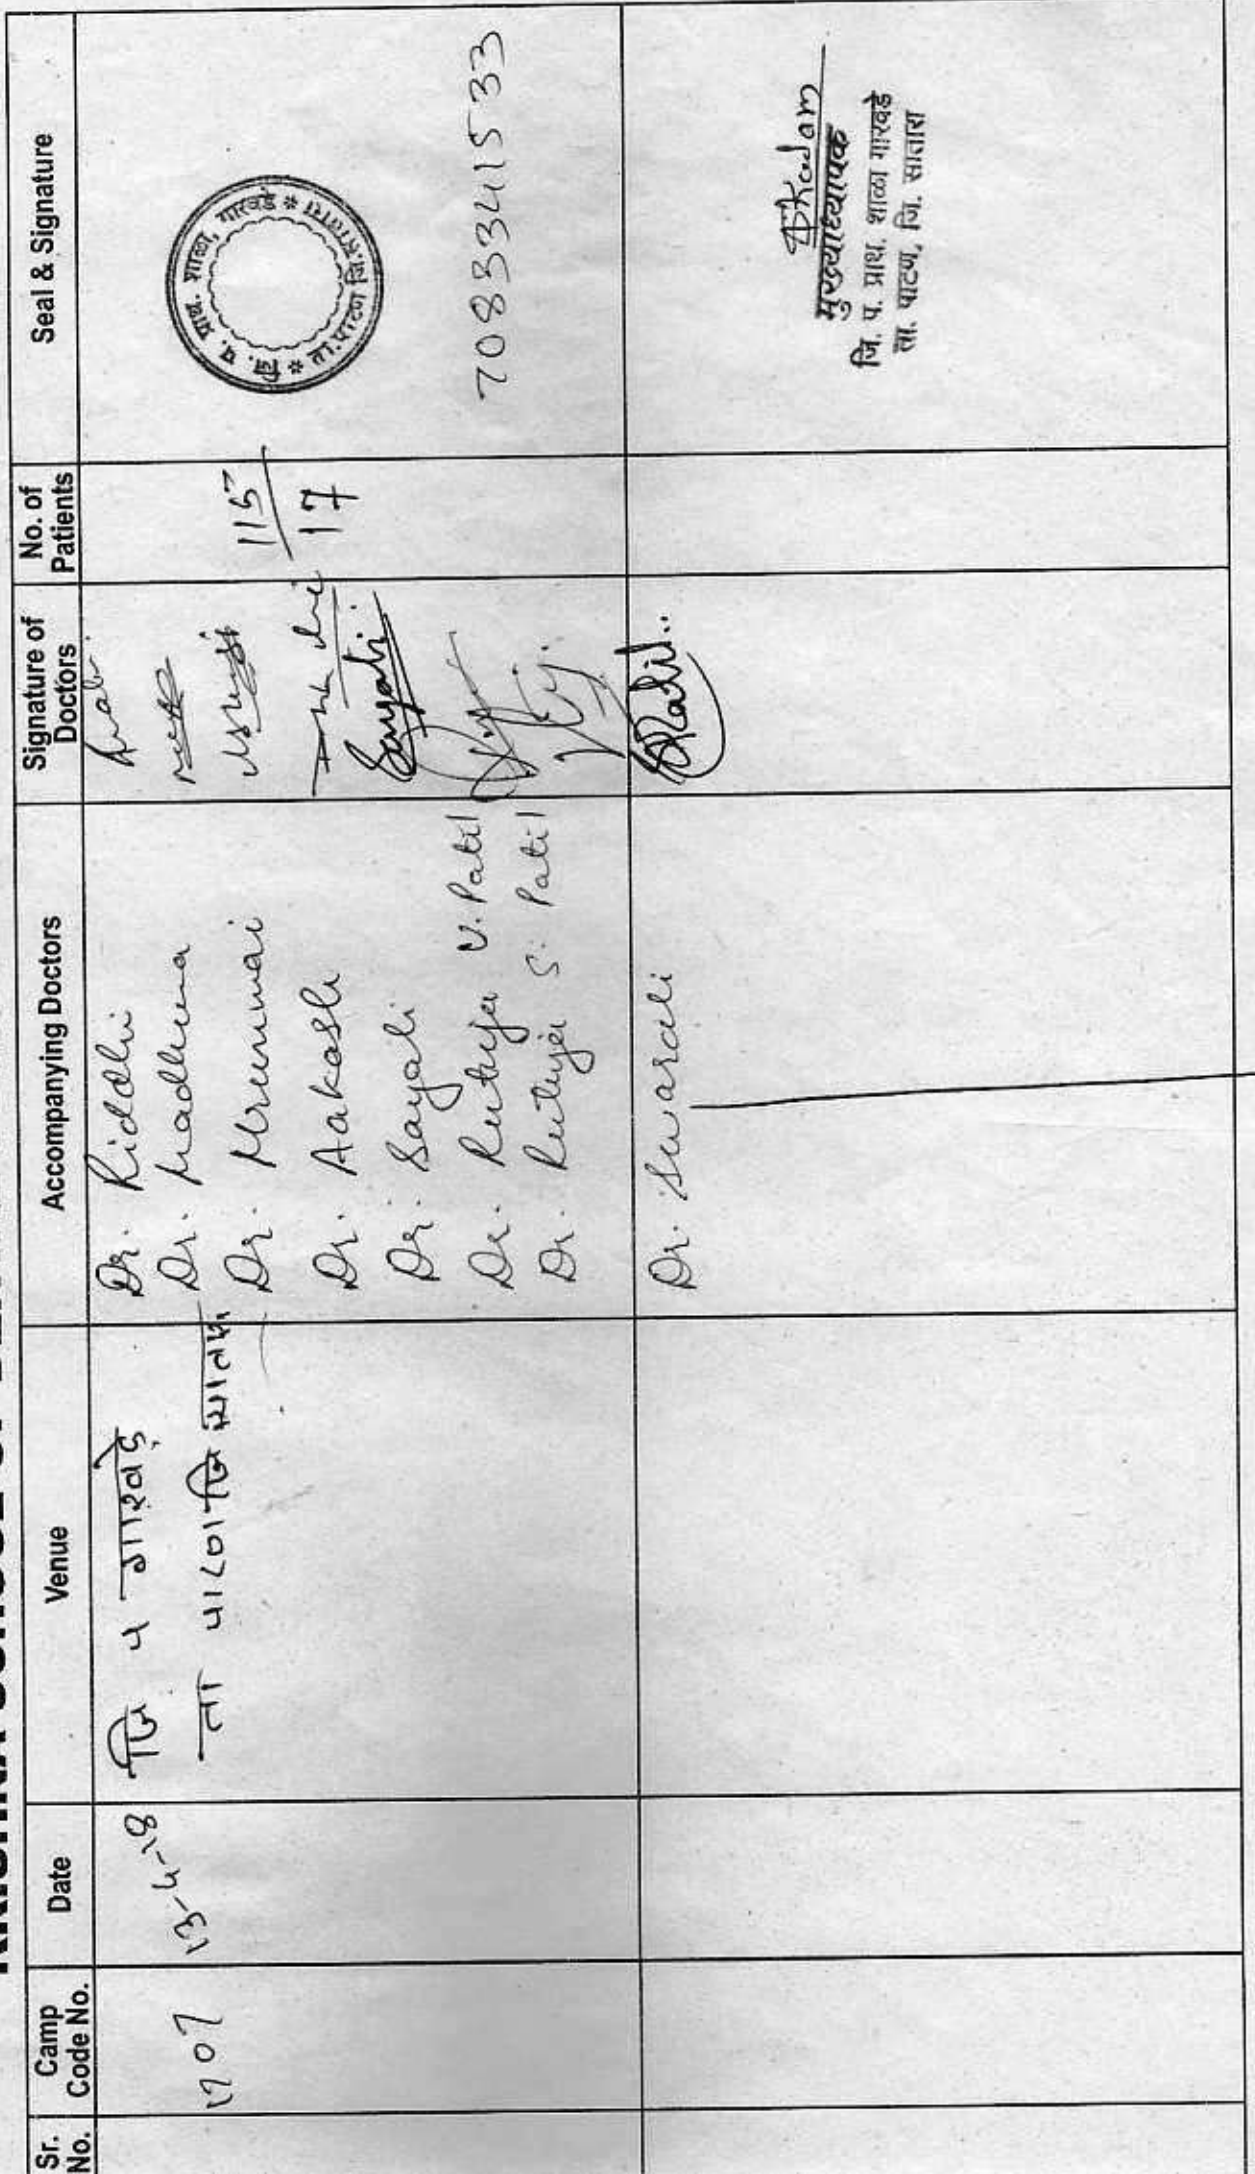 Sr.
No.
Camp
Code No.
Date
Venue
Accompanying Doctors
Signature of
Doctors
No. of
Patients
Seal & Signature
1707
13-4-18
जि प गारवडे
ता पाटण जि सातारा
Dr. Riddhi
Dr. Madhura
Dr. Mrunmai
Dr. Aakash
Dr. Sayali
Dr. Rutuja V. Patil
Dr. Rutuja S. Patil
Sayali
115
17
जि. प. प्राथ. शाळा, गारवडे * ता.पाटण जि.सातारा *
7083341533
Dr. Swarali
SKadam
मुख्याध्यापक
जि. प. प्राथ. शाळा गारवडे
ता. पाटण, जि. सातारा